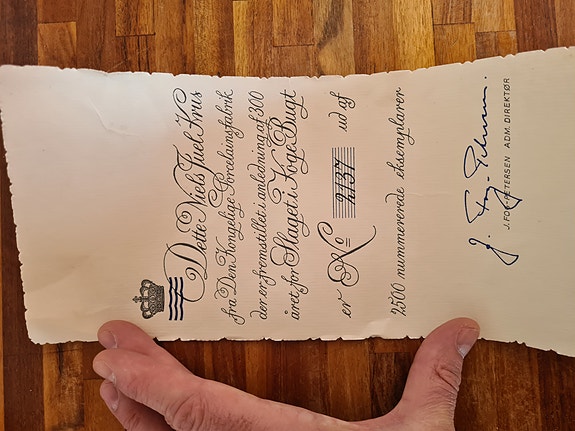 Dette Niels Juel Krus
fra Den Kongelige Porcelainsfabrik
der er fremstillet i anledning af 300
året for Slaget i Køge Bugt
er No 2137 ud af
2500 nummererede eksemplarer
J. Fog-Petersen.
J. FOG-PETERSEN ADM. DIREKTØR